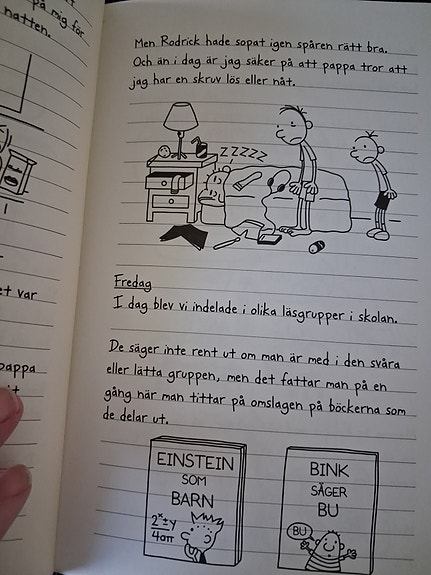 på mig för
natten.
et var
pappa
Men Rodrick hade sopat igen spåren rätt bra.
Och än i dag är jag säker på att pappa tror att
jag har en skruv lös eller nåt.
ZZZZZ
Fredag
I dag blev vi indelade i olika läsgrupper i skolan.
De säger inte rent ut om man är med i den svåra
eller lätta gruppen, men det fattar man på en
gång när man tittar på omslagen på böckerna som
de delar ut.
EINSTEIN
SOM
BARN
2ˣ±y
4απ
BINK
SÄGER
BU
BU